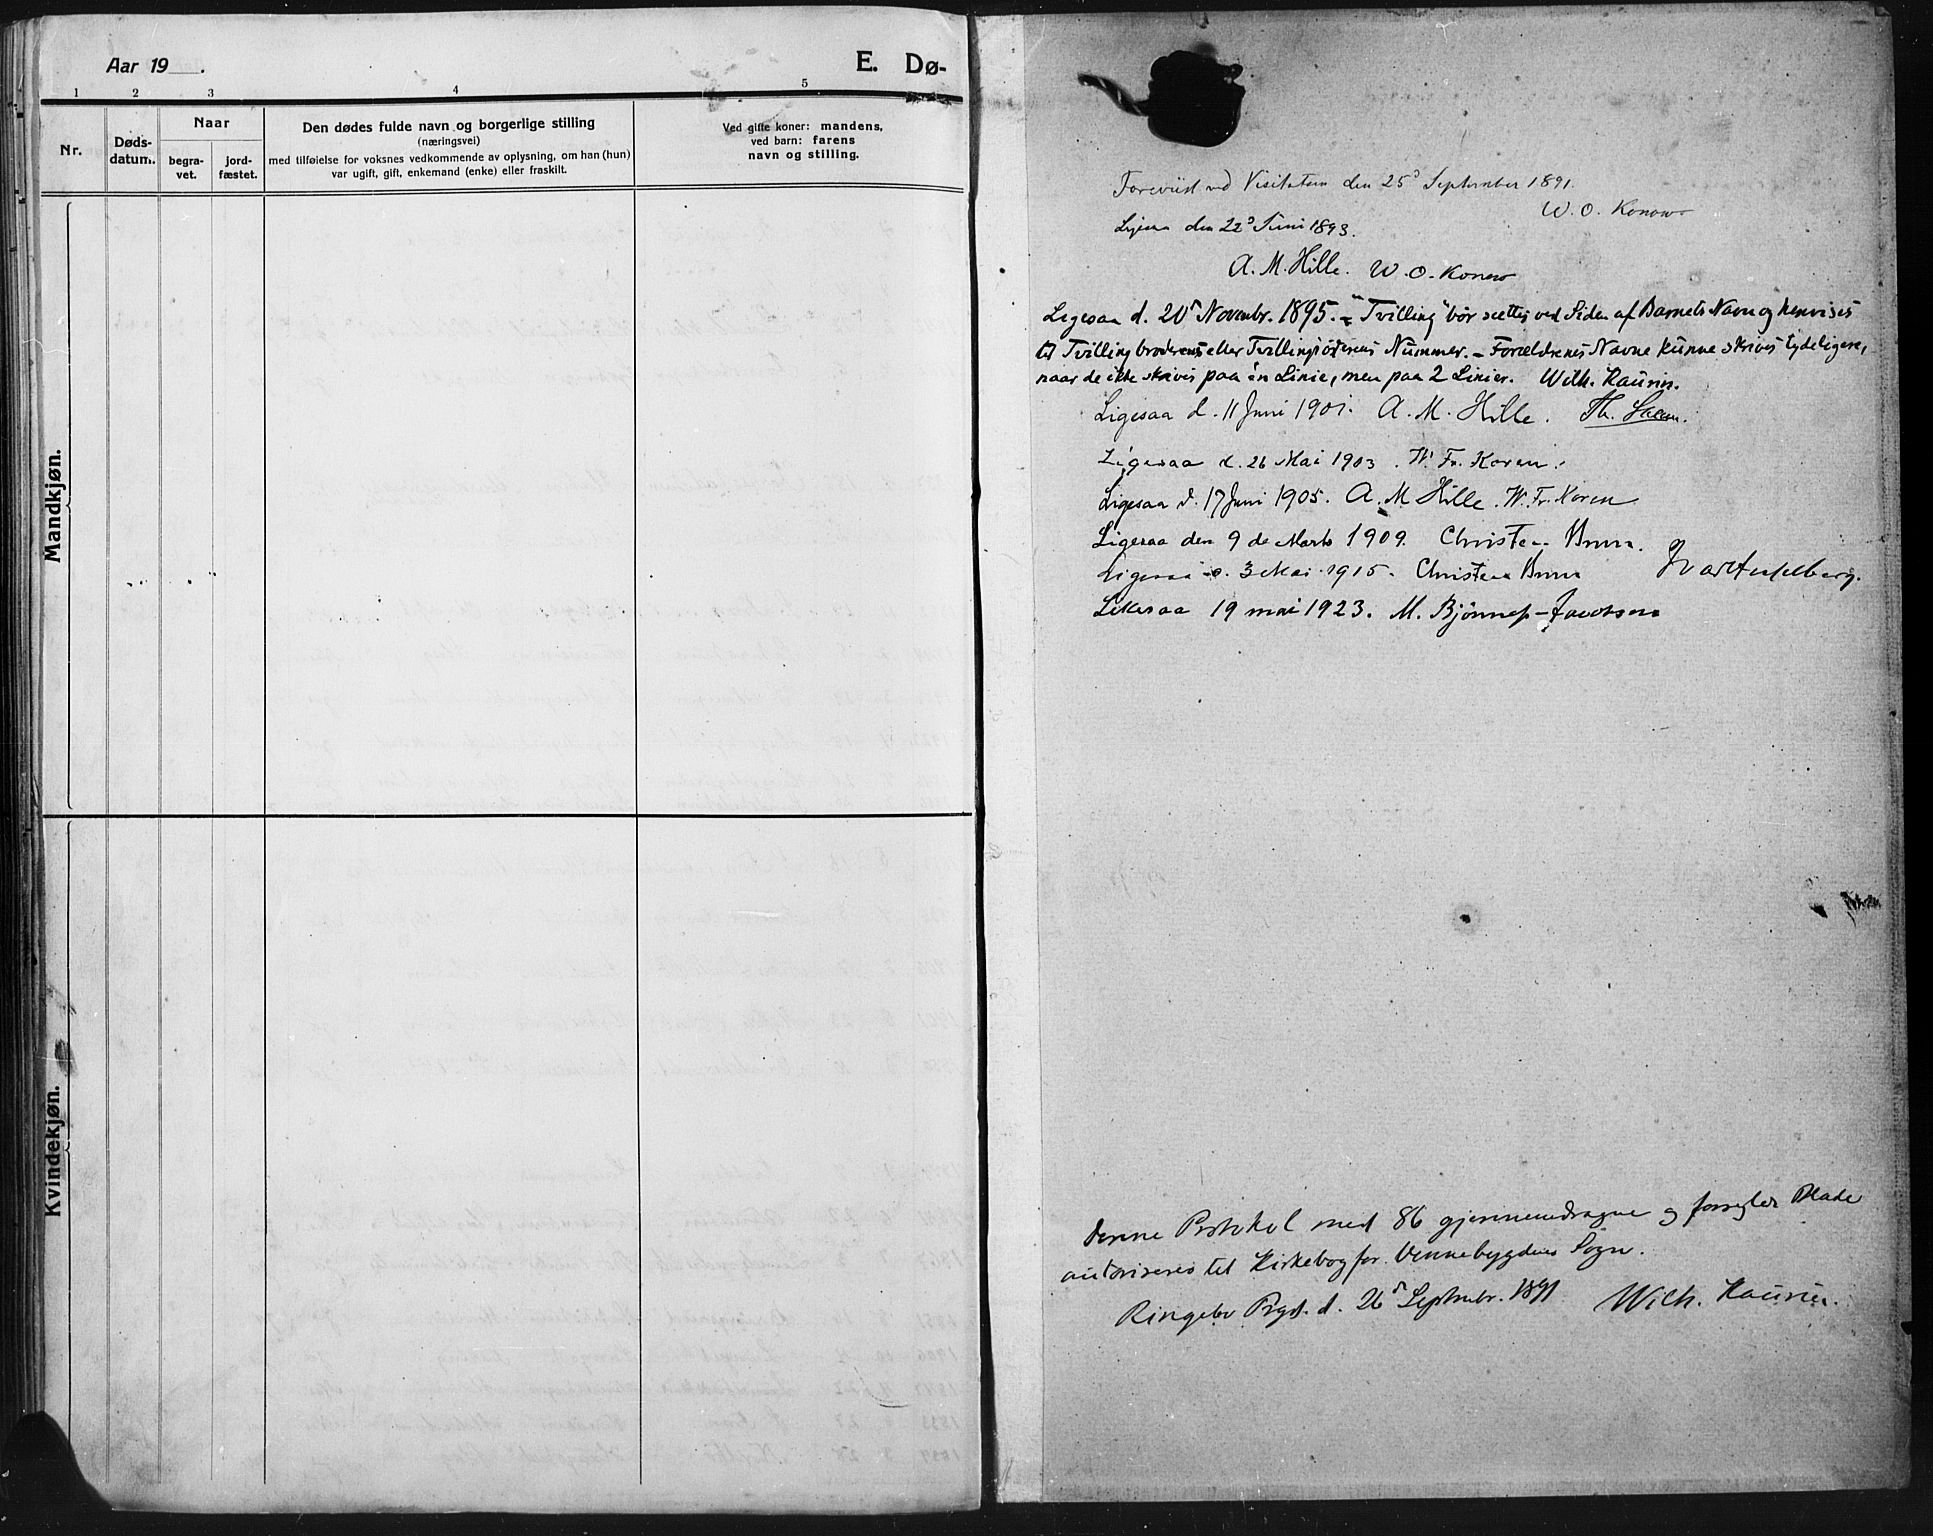 Aar 19   .
E. Dø-
1 2 3 4 5
Nr.
Døds-
datum.
Naar
begra-
vet.
jord-
fæstet.
Den dødes fulde navn og borgerlige stilling
(næringsvei)
med tilføielse for voksnes vedkommende av oplysning, om han (hun)
var ugift, gift, enkemand (enke) eller fraskilt.
Ved gifte koner: mandens,
ved barn: farens
navn og stilling.
Mandkjøn.
Kvindekjøn.
Forevist ved Visitatsen den 25d September 1891.
W. O. Konow
Ligesaa den 22d Juni 1893.
A. M. Hille. W. O. Konow
Ligesaa d. 20d Novembr. 1895. – "Tvilling" bör sættes ved Siden af Barnets Navn og henvises
til Tvillingbroderens eller Tvillingsösterens Nummer. – Forældrenes Navne kunne skrives tydeligere,
naar de ikke skrives paa én Linie, men paa 2 Linier. Wilh. Kaurin.
Ligesaa d. 11 Juni 1901. A. M. Hille. Th.
Ligesaa d. 26 Mai 1903. W. Fr. Koren.
Ligesaa d. 17 Juni 1905. A. M Hille. W. Fr. Koren
Ligesaa den 9de Marts 1909. Christen Brun.
Ligesaa d. 3 Mai 1915. Christen Brun
Likesaa 19 mai 1923. M. Bjönnes-Jacobsen
Denne Protokol med 86 gjennemdragne og forseglede Blade
autoriseres til Kirkebog for Vennebygdens Sogn.
Ringebo Prgd. d. 26d Septembr. 1891 Wilh. Kaurin.